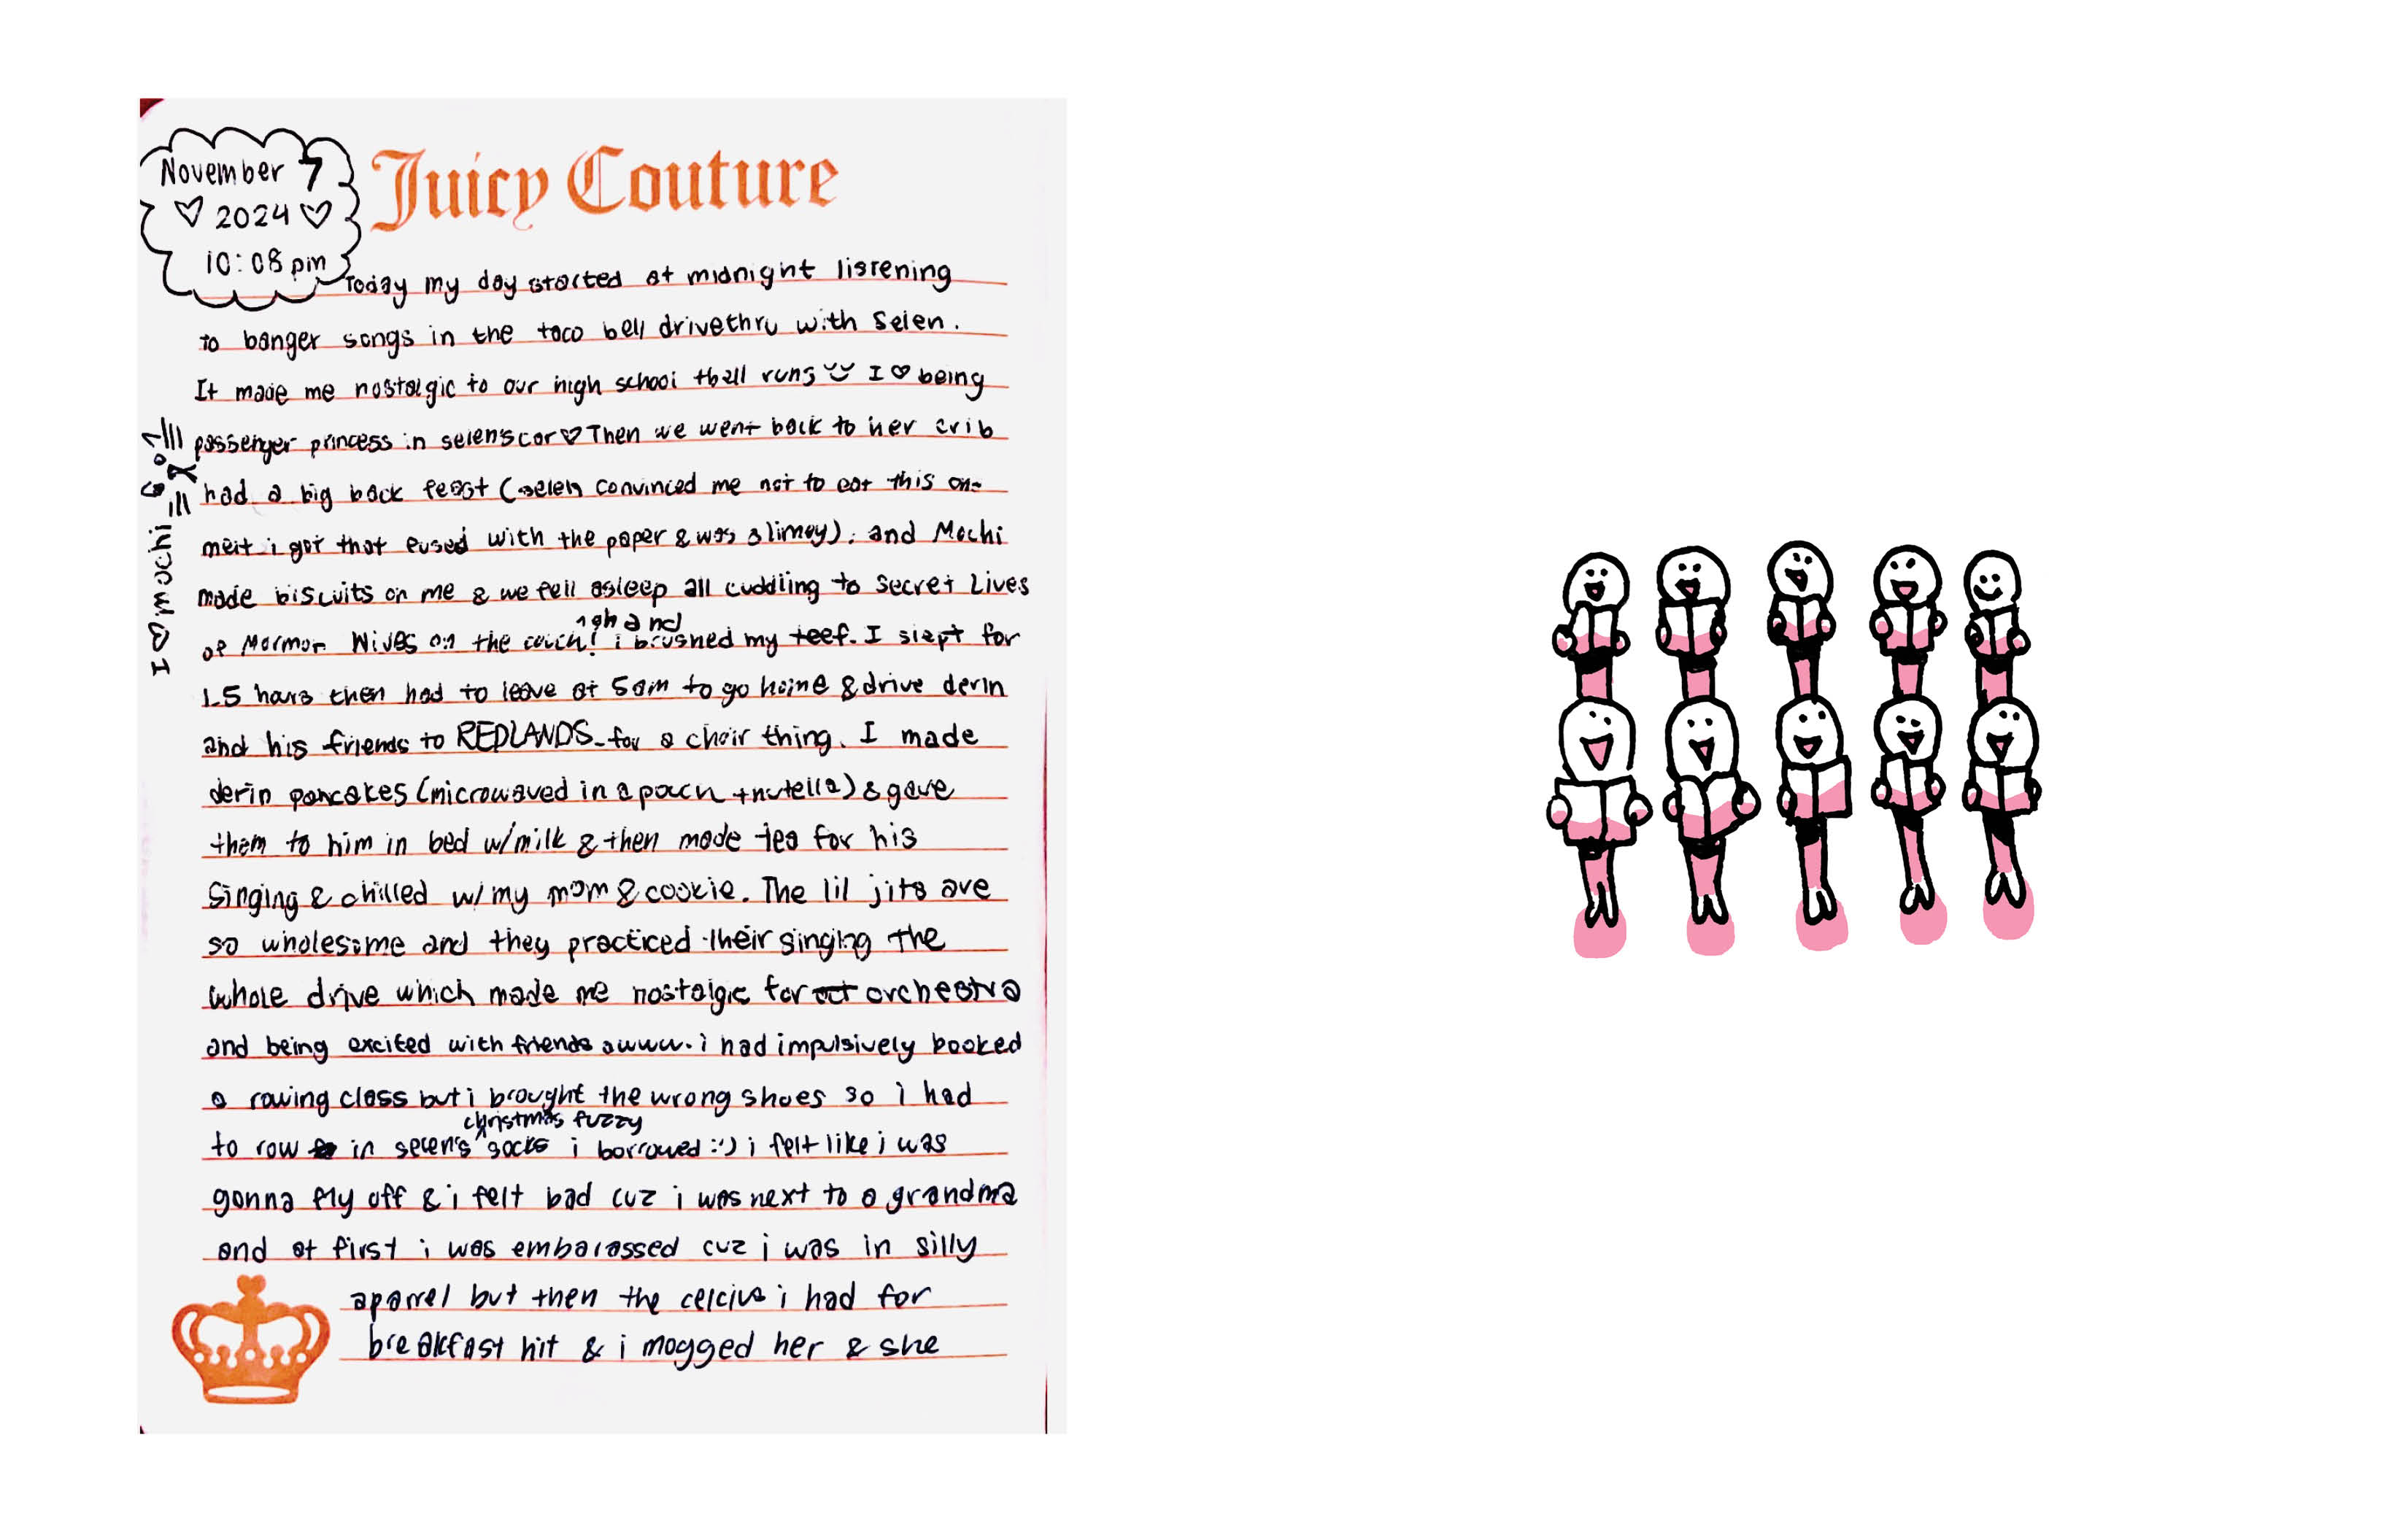 November 7
♡ 2024 ♡
10:08 pm
Juicy Couture
Today my day started at midnight listening
to banger songs in the taco bell drivethru with Selen.
It made me nostalgic to our high school tbell runs I ♡ being
passenger princess in selenscar ♡ Then we went back to her crib
had a big back feast (selen convinced me not to eat this on-
melt i got that fused with the paper & was slimey). and Mochi
made biscuits on me & we fell asleep all cuddling to Secret Lives
of Mormon Wives on the couch! and
i brushed my teef. I slept for
1.5 hours then had to leave at 5am to go home & drive derin
and his friends to REDLANDS for a choir thing. I made
derin pancakes (microwaved in a pouch + nutella) & gave
them to him in bed w/milk & then made tea for his
singing & chilled w/ my mom & cookie. The lil jits are
so wholesome and they practiced their singing the
whole drive which made me nostalgic for orchestra
and being excited with friends awww. i had impulsively booked
a rowing class but i brought the wrong shoes so i had
to row in selen's christmas fuzzy socks i borrowed :') i felt like i was
gonna fly off & i felt bad cuz i was next to a grandma
and at first i was embarassed cuz i was in silly
aparrel but then the celcius i had for
breakfast hit & i mogged her & she
I ♡ mochi